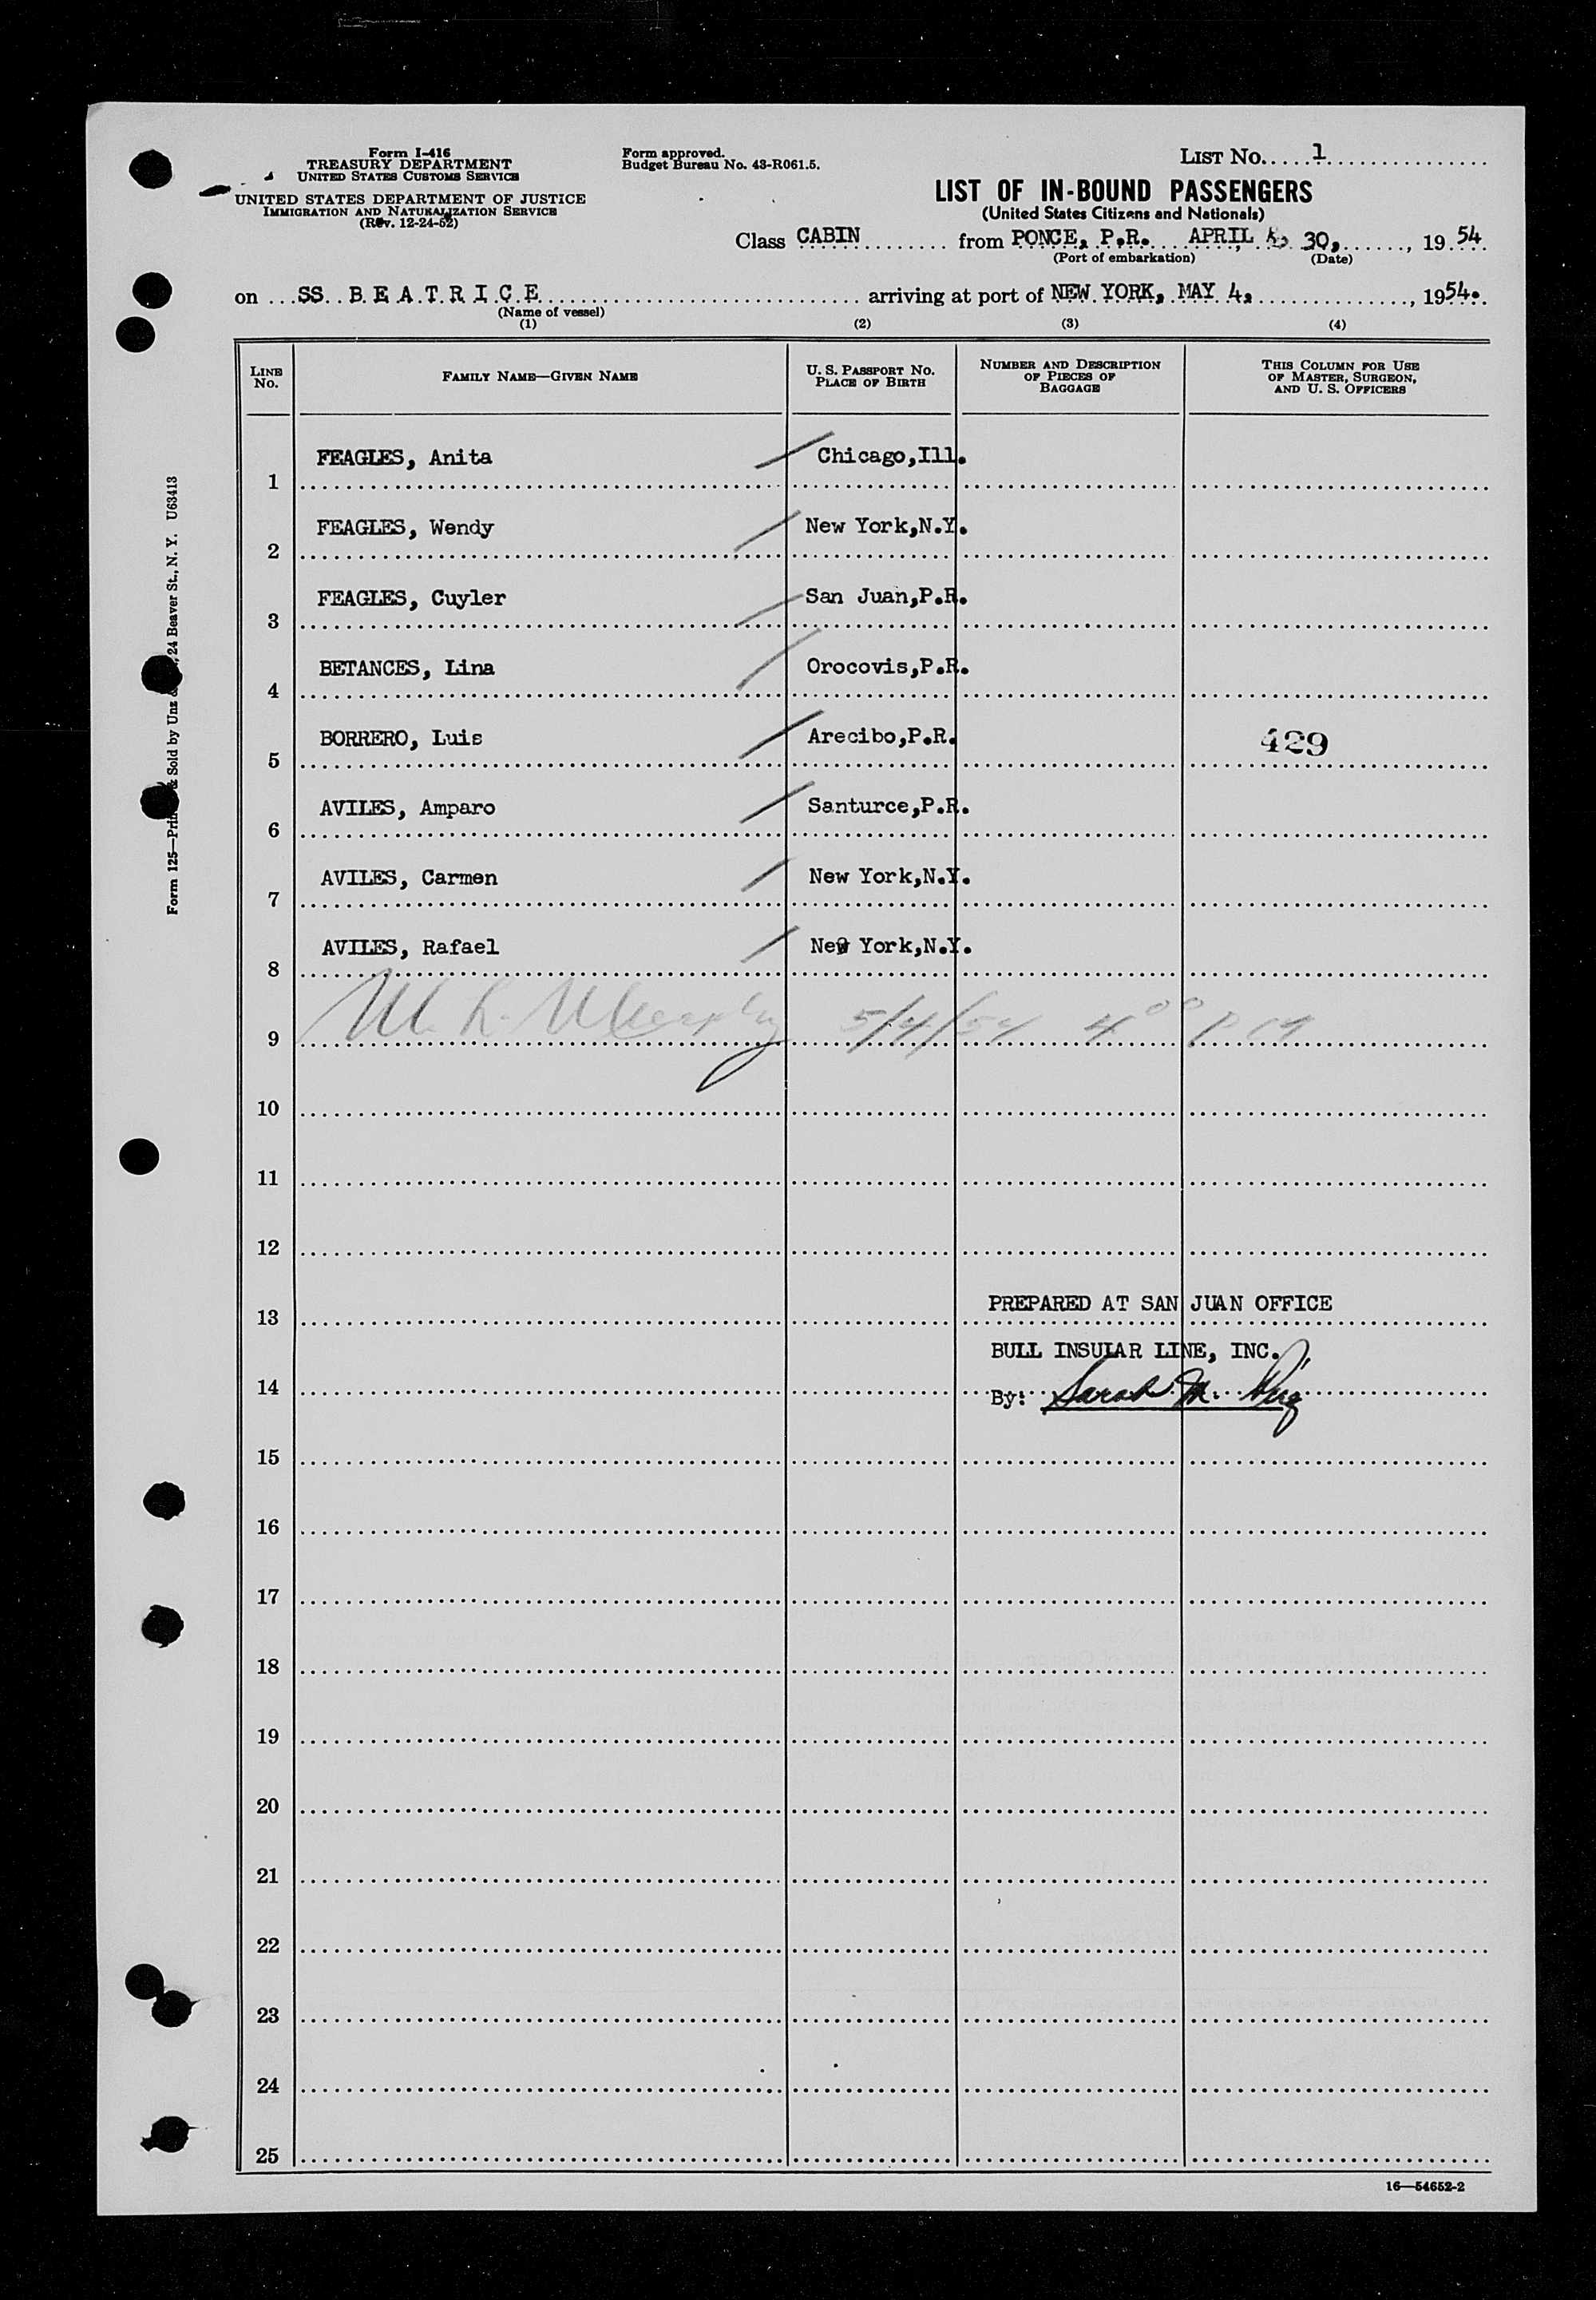 Form I-416
TREASURY DEPARTMENT
UNITED STATES CUSTOMS SERVICE
UNITED STATES DEPARTMENT OF JUSTICE
IMMIGRATION AND NATURALIZATION SERVICE
(Rev. 12-24-52)
Form approved.
Budget Bureau No. 43-R061.5.
LIST No. 1
LIST OF IN-BOUND PASSENGERS
(United States Citizens and Nationals)
Class CABIN from PONCE, P.R. APRIL 30, , 19 54
(Port of embarkation) (Date)
on SS. B E A T R I C E arriving at port of NEW YORK, MAY 4, , 19 54.
(Name of vessel)
(1) (2) (3) (4)
LINE No. FAMILY NAME—GIVEN NAME U. S. PASSPORT NO. PLACE OF BIRTH NUMBER AND DESCRIPTION OF PIECES OF BAGGAGE THIS COLUMN FOR USE OF MASTER, SURGEON, AND U. S. OFFICERS
1 FEAGLES, Anita Chicago,Ill.
2 FEAGLES, Wendy New York,N.Y.
3 FEAGLES, Cuyler San Juan,P.R.
4 BETANCES, Lina Orocovis,P.R.
5 BORRERO, Luis Arecibo,P.R. 429
6 AVILES, Amparo Santurce,P.R.
7 AVILES, Carmen New York,N.Y.
8 AVILES, Rafael New York,N.Y.
9 M. L. Murphy 5/4/54 4 00 PM
10
11
12
13 PREPARED AT SAN JUAN OFFICE
BULL INSULAR LINE, INC.
14 By: Sarah M.
15
16
17
18
19
20
21
22
23
24
25
16—54652-2
Form 125— & Sold by Unz 24 Beaver St., N. Y. U63413